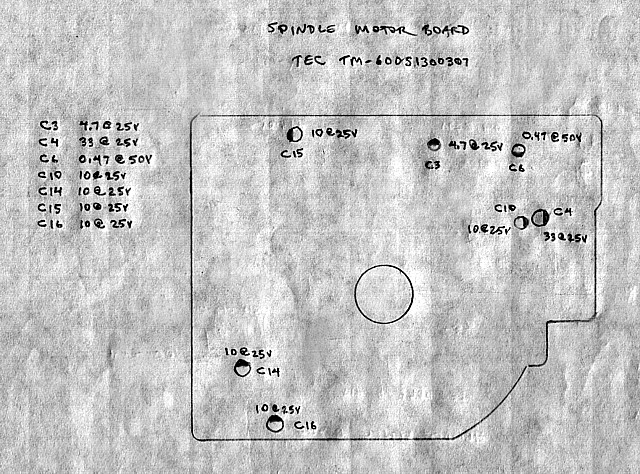 SPINDLE MOTOR BOARD
TEC TM-600S1300307
C3 4.7 @ 25V
C4 33 @ 25V
C6 0.47 @ 50V
C10 10 @ 25V
C14 10 @ 25V
C15 10 @ 25V
C16 10 @ 25V
10 @ 25V
C15
4.7 @ 25V
C3
0.47 @ 50V
C6
C10
10 @ 25V
C4
33 @ 25V
10 @ 25V
C14
10 @ 25V
C16